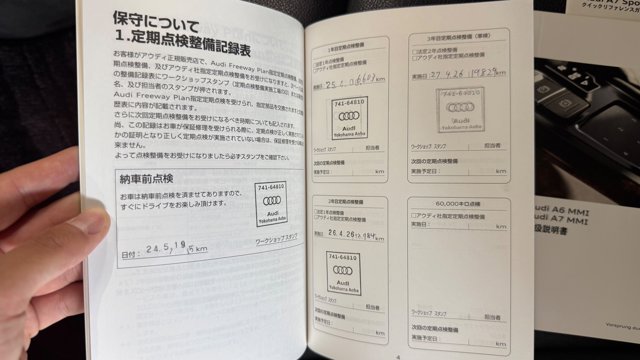 保守について
1.定期点検整備記録表
お客様がアウディ正規販売店で、Audi Freeway Plan指定定期点検整備、
期点検整備、及びアウディ社指定定期点検整備をお受けになりますと、
の整備記録表にワークショップスタンプ
名、及び担当者のスタンプが押されます。
Audi Freeway Plan指定定期点検を受けられ、指定部品を交換されました
歴表に内容が記載されます。
さらに次回定期点検整備をお受けになるべき時期についても記入されます。
尚、この記録はお車が保証修理を受けられる際に、定期点検が正しく実施されて
かの証明となり正しく定期点検が実施されていない場合は、保証修理をお受け
来ません。
よって点検整備をお受けになりましたら必ずスタンプをご確認下さい。
納車前点検
お車は納車前点検を済ませてありますので、
すぐにドライブをお楽しみ頂けます。
741-64810
Audi
Yokohama Aoba
日付: 24.5,19 15 km
ワークショップ スタンプ
1年目定期点検整備
□法定1年点検整備
□アウディ社指定定期点検整備
実施日: km
741-64810
Audi
Yokohama Aoba
ワークショップ スタンプ 担当者
次回の定期点検整備
実施予定日: km
2年目定期点検整備
□アウディ社指定定期点検整備
実施日: 26.4.26 km
741-64810
Audi
Yokohama Aoba
ワークショップ スタンプ 担当者
次回の定期点検整備
実施予定日: km
3年目定期点検整備(車検)
□法定2年点検整備
□アウディ社指定定期点検整備
実施日: 27.4.26 19829 km
Audi
Yokohama Aoba
ワークショップ スタンプ 担当者
次回の定期点検整備
実施予定日: km
60,000キロ点検
□アウディ社指定定期点検整備
実施日: km
ワークショップ スタンプ 担当者
次回の定期点検整備
実施予定日: km
4
A7 Spo
クイックリファレンスガ
Audi A6 MMI
Audi A7 MMI
扱説明書